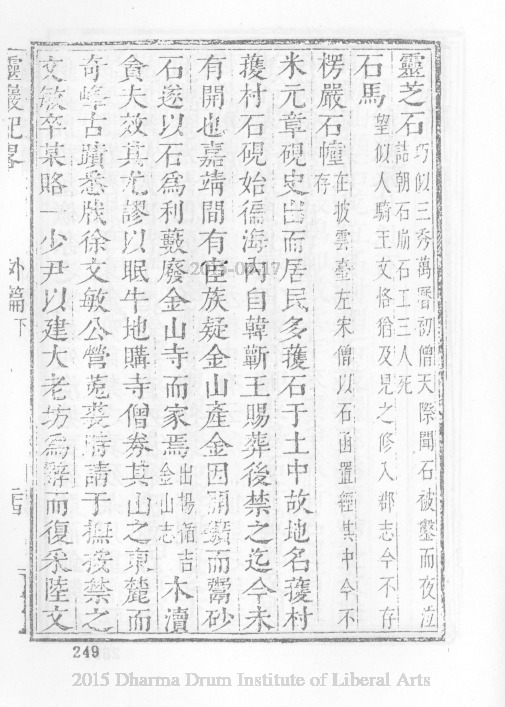 靈芝石巧似三秀萬曆初僧天際聞石被鑿而夜泣詰朝石崩石工三人死
石馬望似人騎王文恪猶及見之修入郡志今不存
楞嚴石幢在披雲臺左宋僧以石函置經其中今不存
米元章硯史出而居民多䕶石于土中故地名䕶村
䕶村石硯始徧海內自韓蘄王賜葬後禁之迄今未
有開也嘉靖間有宦族疑金山產金因開鑿而鬻砂
石遂以石為利藪廢金山寺而家焉出楊循吉金山志木瀆
貪夫效其尤謬以眠牛地購寺僧券其山之東麓而
奇峰古蹟悉戕徐文敏公營菟裘時請于撫按禁之
文敏卒某賂一少尹以建大老坊為辭而復采陸文
靈巖紀畧 外篇下
249
2015-09-17
2015 Dharma Drum Institute of Liberal Arts